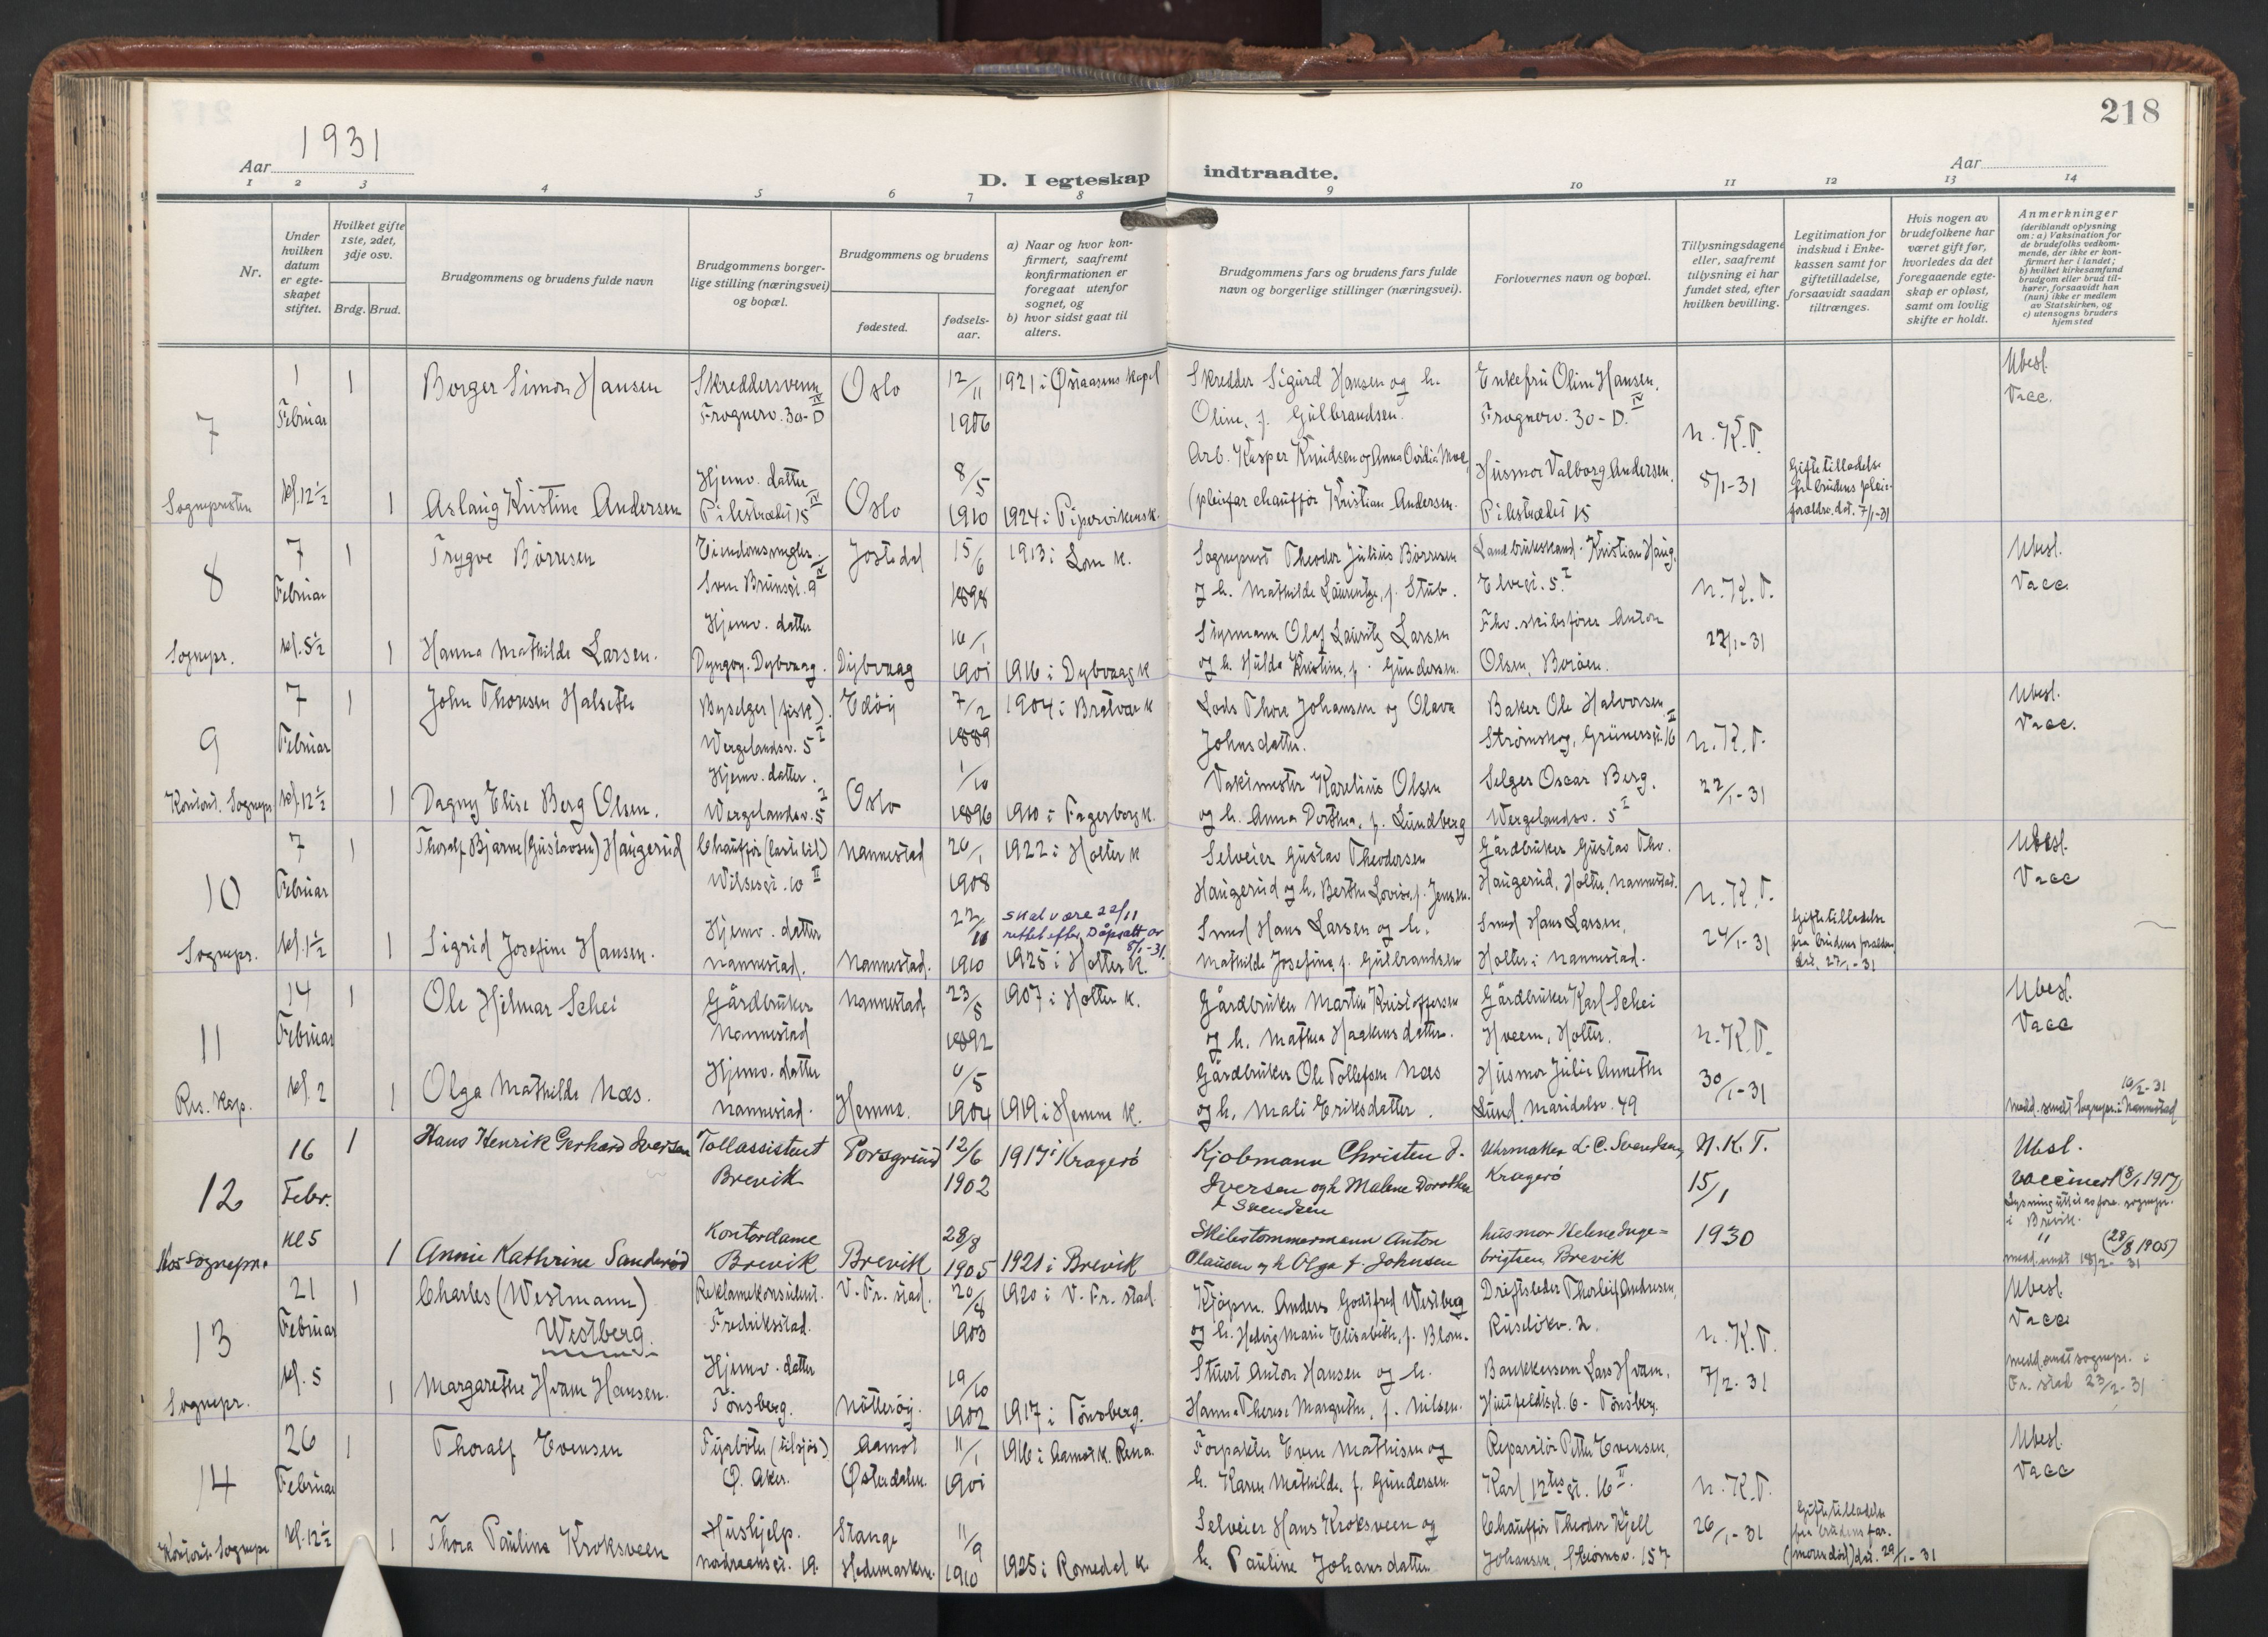 218
Aar 1931
Aar
D. I egteskap indtraadte.
1 2 3 4 5 6 7 8 9 10 11 12 13 14
Nr.
Under hvilken datum er egteskapet stiftet.
Hvilket gifte 1ste, 2det, 3dje osv.
Brdg. Brud.
Brudgommens og brudens fulde navn
Brudgommens borgerlige stilling (næringsvei) og bopæl.
Brudgommens og brudens
fødested.
fødselsaar.
a) Naar og hvor konfirmert, saafremt konfirmationen er foregaat utenfor sognet, og
b) hvor sidst gaat til alters.
Brudgommens fars og brudens fars fulde navn og borgerlige stillinger (næringsvei).
Forlovernes navn og bopæl.
Tillysningsdagene eller, saafremt tillysning ei har fundet sted, efter hvilken bevilling.
Legitimation for indskud i Enkekassen samt for giftetilladelse, forsaavidt saadan tiltrænges.
Hvis nogen av brudefolkene har været gift før, hvorledes da det foregaaende egteskap er opløst, samt om lovlig skifte er holdt.
Anmerkninger (deriblandt oplysning om: a) Vaksination for de brudefolks vedkommende, der ikke er konfirmert her i landet; b) hvilket kirkesamfund brudgom eller brud tilhører, forsaavidt han (hun) ikke er medlem av Statskirken, og c) utensogns bruders hjemsted
7 Sognepresten
1 Februar kl. 12 1/2
1 Borger Simon Hansen
Skreddersvenn Frognerv. 30-D IV
Oslo
12/11 1906
1921 i Østaasens Kapel
Skredder Sigurd Hansen og h. Oline, f. Gulbrandsen.
Enkefru Oline Hansen, Frognerv. 30-D. IV
N.K.T. 8/1-31
Ubesl. Vacc.
1 Aslaug Kristine Andersen
Hjemv. datter Pilestrædet 15 IV
Oslo
8/5 1910
1924 i Pipervikens k.
Arb. Kasper Knudsen og Anna Ovidia Moe, (pleiefar chauffør Kristian Andersen.
Husmor Valborg Andersen, Pilestrædet 15
Giftetilladelse fr. brudens pleieforældre. dat. 7/1-31
8 Sognepr.
7 Februar kl. 5 1/2
1 Trygve Børresen
Eiendomsmegler. Sven Brunsgt. 9 IV
Jostedal
15/6 1898
1913 i Lom k.
Sogneprest Theodor Julius Børresen og h. Mathilde Laurentze, f. Stub.
Landbrukskand. Kristian Haug, Elvegt. 5 I
N.K.T. 22/1-31
Ubesl. Vacc.
1 Hanna Mathilde Larsen.
Hjemv. datter Dyngøy. Dybvaag.
Dybvaag
16/1 1901
1916 i Dybvaag k
Styrmann Olaf Lauritz Larsen og h. Hulda Kristine, f. Gundersen.
Fhv. skibsfører Anton Olsen, Borøen.
9 Konst. Sognepr
7 Februar kl. 12 1/2
1 John Thoresen Halseth
Byselger (fisk). Wergelandsv. 5 I
Edøy
7/2 1889
1904 i Bratvær k
Lods Thore Johansen og Olava Johnsdatter.
Baker Ole Halvorsen Strømskog, Grünersgt. 16 II
N.K.T. 22/1-31
Ubesl. Vacc.
1 Dagny Elise Berg Olsen.
Hjemv. datter. Wergelandsv. 5 I
Oslo
1/10 1896
1910 i Fagerborg k.
Vaktmester Karelius Olsen og h. Anna Dorthea, f. Lundberg
Selger Oscar Berg. Wergelandsv. 5 I
10 Sognepr.
7 Februar kl. 1 1/2
1 Thoralf Bjarne (Gustavsen) Haugerud
Chauffør (lastebil) Wilsesgt. 10 II
Nannestad
20/1 1908
1922 i Holter k
Selveier Gustav Theodorsen Haugerud og h. Berthe Lovise, f. Jensen.
Gårdbruker Gustav Thv. Haugerud, Holter, Nannestad.
N.K.T. 24/1-31
Ubesl. Vacc
1 Sigrid Josefine Hansen.
Hjemv. datter Nannestad.
Nannestad.
22/10 1910
skal være 22/11 rettet efter Dåpsatt. av 8/1-31.
1925 i Holter k.
Smed Hans Larsen og h. Mathilde Josefine, f. Gulbrandsen
Smed Hans Larsen, Holter i Nannestad.
Giftetilladelse fra brudens foreldre dat. 27/1-31
11 Res. Kap.
14 Februar kl. 2
1 Ole Hilmar Schei
Gårdbruker Nannestad
Nannestad
23/8 1892
1907 i Holter k.
Gårdbruker Martin Kristoffersen og h. Mathea Haakensdatter.
Gårdbruker Karl Schei Hveem, Holter.
N.K.T. 30/1-31
Ubesl. Vacc
1 Olga Mathilde Næs.
Hjemv. datter Nannestad.
Hemne.
6/5 1904
1919 i Hemne k.
Gårdbruker Ole Tollefsen Næs og h. Mali Eriksdatter.
Husmor Julie Annethe Lund. Maridalsv. 79
10/2-31 medd. sendt Sognepr. i Nannestad
12 Kst Sognepr.
16 Febr. kl 5
1 Hans Henrik Gerhard Iversen
Tollassistent Brevik
Porsgrund
12/6 1902
1917 i Kragerö
Kjøbmann Christen J. Iversen og h Malene Dorothea f Svendsen
Uhrmaker L. C. Svendsen, Kragerö
N.K.T. 15/1 1930
Ubsl. vaccinert
Lysning i Brevik.
1 Annie Kathrine Sanderød
Kontordame Brevik
Brevik
28/8 1905
1921 i Brevik
Skibstømmermann Anton Olausen og h Olga f. Johnsen
husmor Helene Ingebrigtsen, Brevik
" (28/8 1905)
medd. sendt 18/2-31
13 Sognepr.
21 Februar kl. 5
1 Charles (Westmann) Westberg.
Reklamekonsulent. Fredriksstad.
V. Fr. stad.
20/8 1903
1920 i V. Fr. stad.
Kjøpm. Anders Godtfred Westberg og h. Hedvig Marie Elisabeth, f. Blom.
Driftsleder Thorleif Andresen, Ruseløkv. 2.
N.K.T. 7/2-31
Ubesl. Vacc
1 Margarethe Hvam Hansen.
Hjemv. datter Tønsberg.
Nøtterøy.
19/10 1902
1917 i Tønsberg.
Stuert Anton Hansen og h. Hanna Therese Margrethe, f. Nilsen.
Bankkasserer Lars Hvam, Huitfeldtsgt. 6 - Tønsberg.
medd. sendt sognepr. i Fr. stad 23/2-31
14 Konst. Sognepr
26 Februar kl. 12 1/2
1 Thoralf Evensen
Fyrbøter (tilsjøs) Ø. Aker.
Aamot Østerdalen.
11/1 1901
1916 i Aamot k. Rena.
Forpakter Even Mathisen og h. Karen Mathilde, f. Gundersen.
Reparatør Petter Evensen, Karl 12tes gt. 16 II.
N.K.T. 26/1-31
Ubesl. Vacc
1 Thora Pauline Kroksveen
Hushjelp. Nordraaksgt. 19.
Stange Hedemarken.
11/9 1910
1925 i Romedal k.
Selveier Hans Kroksveen og h. Pauline Johansdatter
Chauffør Theodor Kjell Johansen, Strømsv. 157
Giftetilladelse fra brudens far. (moren død) dat. 29/1-31